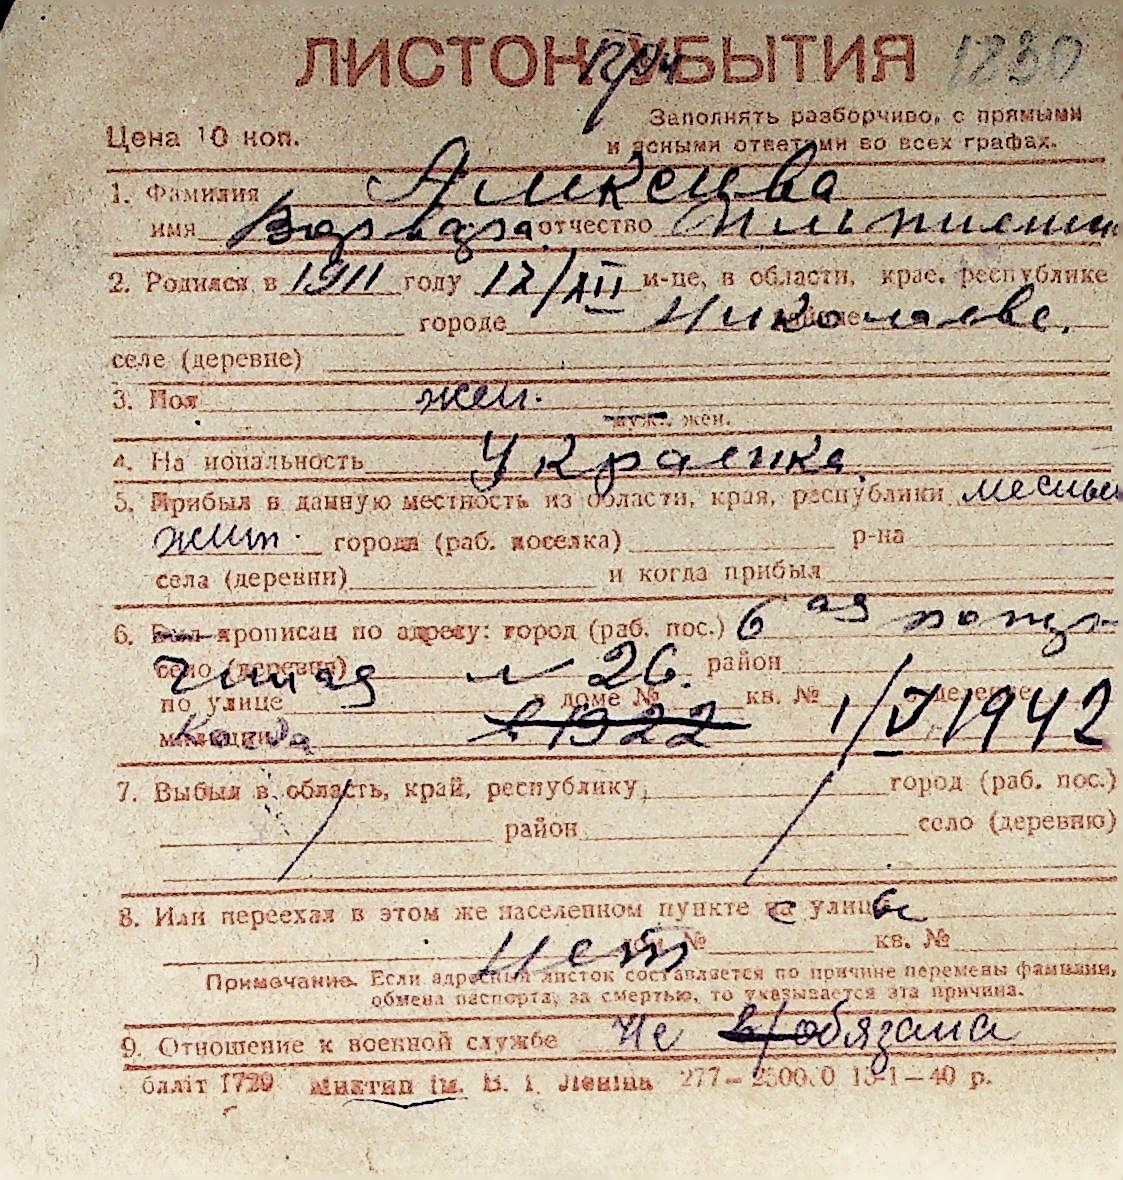 ЛИСТОК УБЫТИЯ 1230
Цена 10 коп.
Заполнять разборчиво, с прямыми
и ясными ответами во всех графах.
1. Фамилия Аликсеива
имя Варвара отчество
2. Родился в 1911 году 12/XII м-це, в области, крае, республике
городе районе Николаеве.
селе (деревне)
3. Пол жен.
муж., жен.
4. Национальность Украенка
5. Прибыл в данную местность из области, края, республики
жит. города (раб. поселка) р-на
села (деревни) и когда прибыл
6. Был прописан по адресу: город (раб. пос.) 6 ая попер-
село (деревня) чиная N 26. район
по улице в доме № кв. № в отделение
милиции Когда в 1922 1/V 1942
7. Выбыл в область, край, республику город (раб. пос.)
район село (деревню)
8. Или переехал в этом же населенном пункте на улицу
дом № кв. №
Нет
Примечание. Если адресный листок составляется по причине перемены фамилии,
обмена паспорта, за смертью, то указывается эта причина.
9. Отношение к военной службе Не в/обязана
бліліт 1720 Миктип ім. В. І. Леніна 277—250000 13-1—40 р.